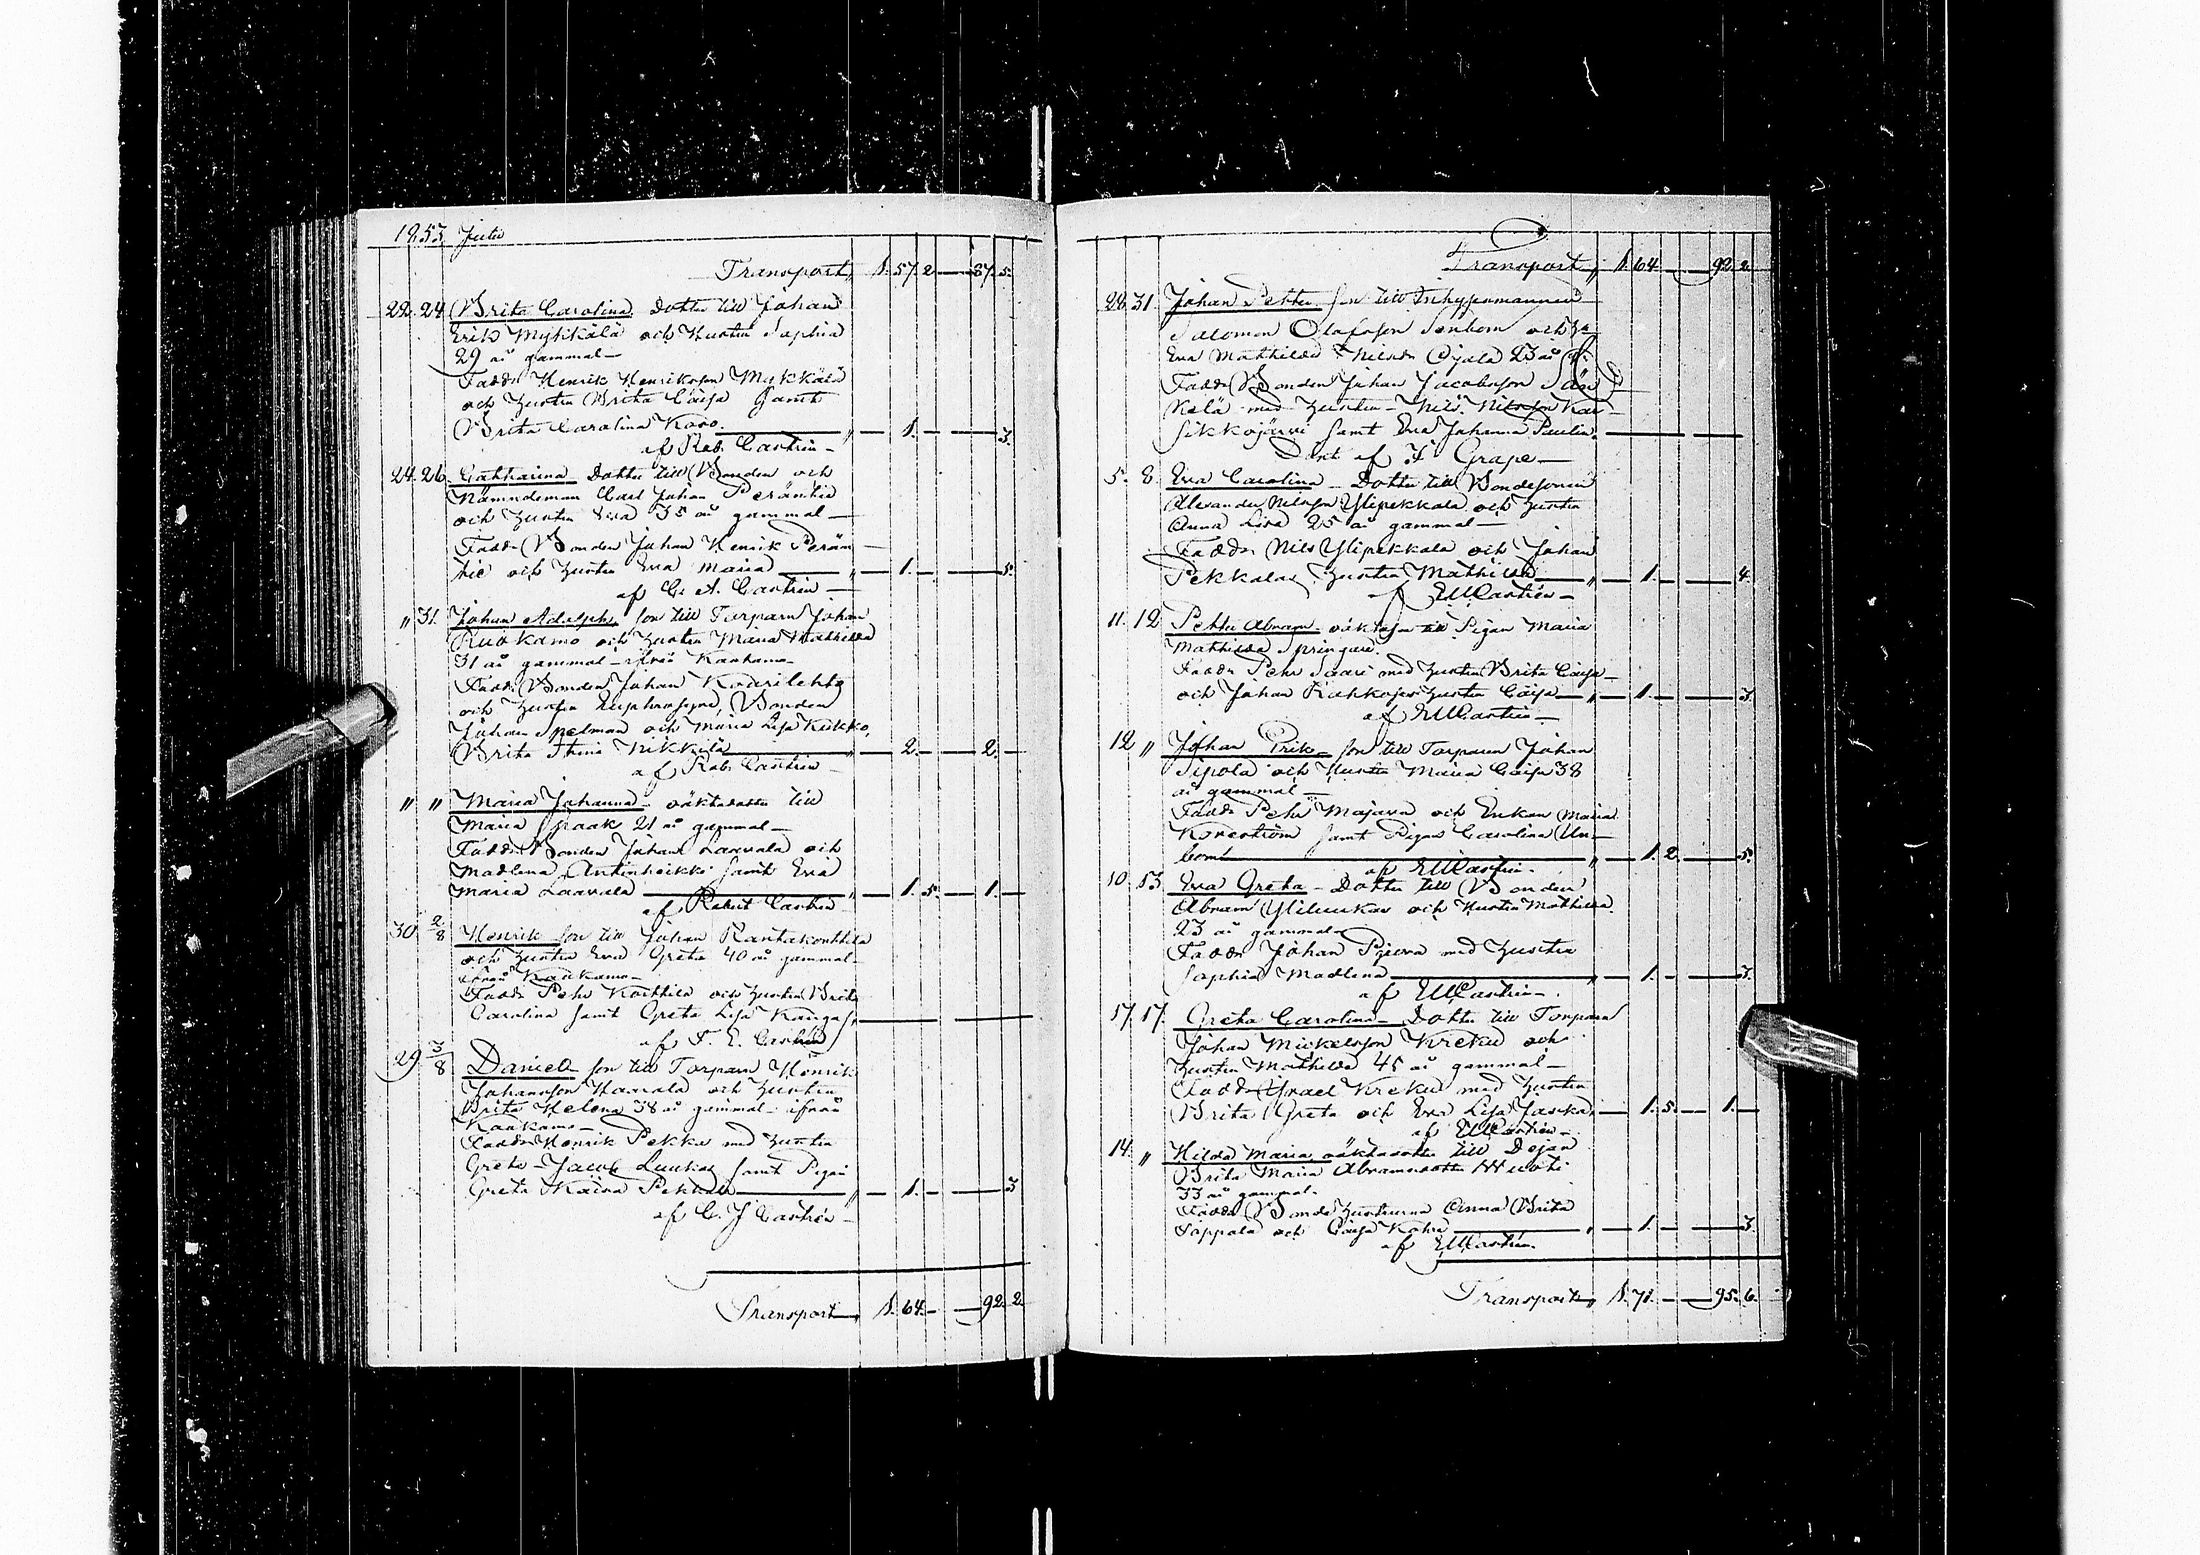 1853 Julii
Transport „ 1. 57. 2 — 87. 5.
22. 24. Brita Carolina Dotter till Johan
Erik Mykkälä och Hustru Sophia
29 år gammal —
Faddr Henrik Henriksson Mykkälä
och hustru Brita Cajsa samt
Brita Carolina Koso. „ — 1. — 3.
af Rob. Castrén —
24. 26. Catharina Dotter till Bonden och
Nämndeman Carl Johan Peräntie
och hustru Lisa 35 år gammal —
Faddr Bonden Johan Henrik Perän-
tie och hustru Eva Maria „ — 1. — 5.
af C. A. Castrén —
„ 31. Johan Adolph, son till Torparn Johan
Ruokamo och hustru Maria Mathilda
31 år gammal — ifrån Kaakamo —
Faddr Bonden Johan Kaarilehto
och hustru, Bonden
Johan Spelman och Maria Lisa Kukko,
Brita Stina Nikkilä „ — 2. — 2. —
af Rob. Castrén —
„ „ Maria Johanna — oäkta dotter till
Maria Spaak 21 år gammal —
Faddr Bonden Johan Laavala och
Madlena Antinheikki samt Eva
Maria Laavala „ — 1. 5. — 1. —
af Robert Castrén
30. 2/8 Henrik son till Johan Rantakonttila
och hustru Eva Greta 40 år gammal —
ifrån Kaakamo —
Faddr Pehr Konttila och hustru Brita
Carolina samt Greta Lisa Kangas, —
af F. E. Castrén
29 3/8 Daniel son till Torparn Henrik
Johansson Haavala och hustru
Brita Helena 38 år gammal — ifrån
Kaakamo —
Faddr Henrik Pekka med hustru
Greta — Jacob Luukas samt Pigan
Greta Kaisa Pekkala „ — 1. — 3
af C. J. Castrén —
Transport „ 1. 64. — 92. 2.
Transport „ 1. 64. — 92. 2.
28. 31. Johan Petter son till Inhysesmannen
Salomon Olofsson Sonbom och H:
Eva Mathilda Nilsdr Ojala 23 år
Faddr Bonden Johan Jacobsson Sän
kelä med hustru — Nils Nilsson Kar-
sikkojärvi samt Eva Johanna Paulin.
Döpt af F. Grape —
5. 8. Eva Carolina — Dotter till Bondesonen
Alexander Nilsson Ylipekkala och hustru
Anna Lisa 25 år gammal —
Faddr Nils Ylipekkala och Johan
Pekkalas hustru Mathilda „ — 1. — 4.
af EMCastrén —
11. 12. Petter Abram — oäkta son till Pigan Maria
Mathilda Springare.
Faddr Pehr Saari med hustru Brita Cajsa —
och Johan hustru Cajsa — „ — 1. — 3.
af EMCastrén —
12. „ Johan Erik — son till Torparen Johan
Sipola och Hustru Maria Cajsa 38
år gammal —
Faddr Pehr Majava och Enkan Maria
Korström samt Pigan Carolina Un-
bom „ — 1. 2. — 5.
af EMCastrén.
10. 13. Eva Greta — Dotter till Bonden
Abram Yliluukas och Hustru Mathilda.
23 år gammal —
Faddr Johan med hustru
Sophia Madlena „ — 1. — 3.
af EMCastrén —.
17. 17. Greta Carolina — Dotter till Torparn
Johan Mickelsson Kreku och
hustru Mathilda 45 år gammal —
Faddr Israel Kreku med hustru
Brita Greta och Eva Lisa Jaska — 1. 5. — 1. —
af EMCastrén —.
14. „ Hilda Maria oäkta dotter till Dejan
Brita Maria Abramsdotter Huoti
33 år gammal —
Faddr Bonde hustrurna Anna Brita
Sappala och Cajsa Kähri „ — 1. — 3.
af EMCastrén.
Transport „ 1. 71. — 95. 6.